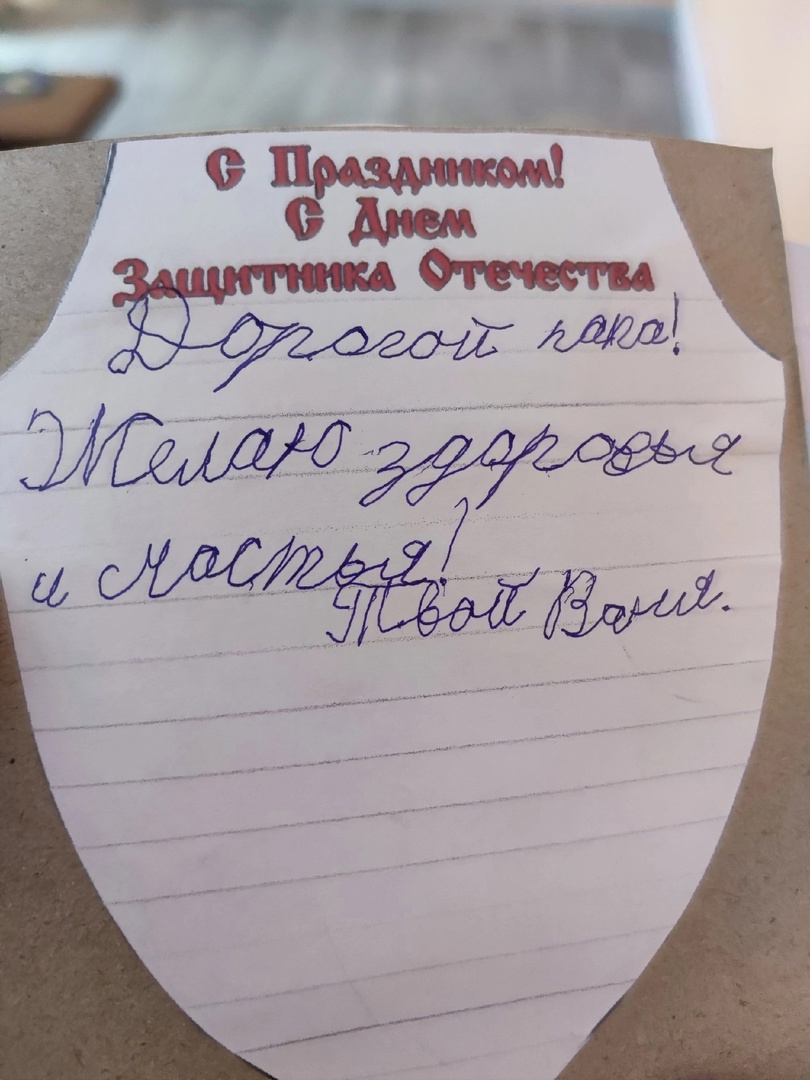 С Праздником!
С Днем
Защитника Отечества
Дорогой папа!
Желаю здоровья
и счастья!
Твой Ваня.